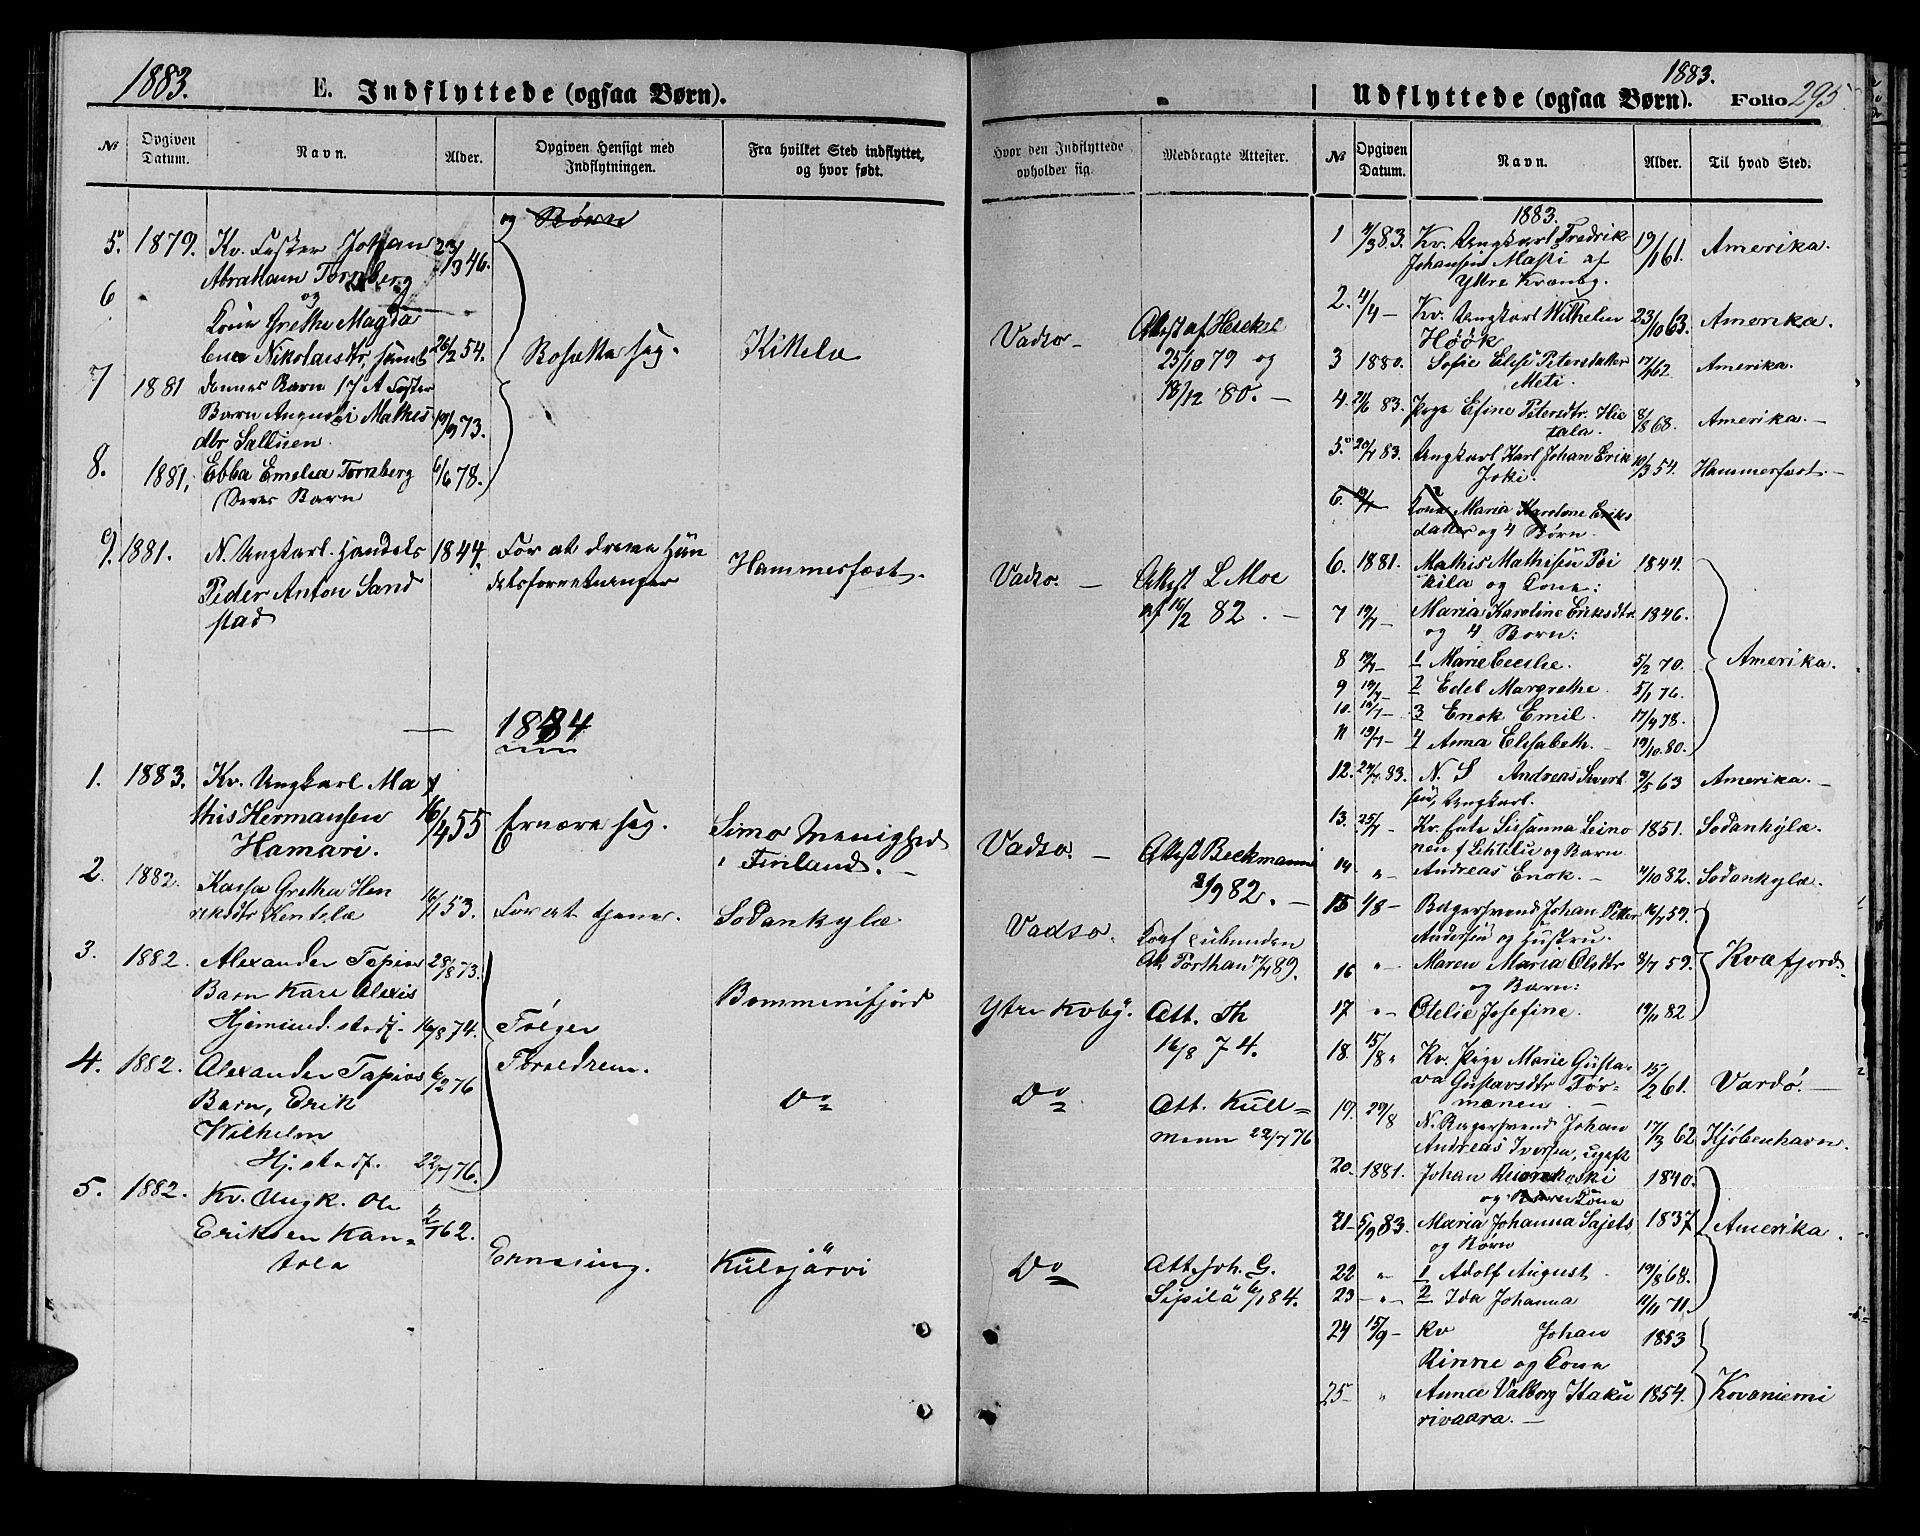 1883.
E. Indflyttede (ogsaa Børn).
№
Opgiven Datum.
Navn.
Alder.
Opgiven Hensigt med Indflytningen.
Fra hvilket Sted indflyttet, og hvor født.
og Børn
5. 1879. Kv. Johan 23/1 46.
Abraham Tornberg
6 og
Kone Grethe Magda
lena Nikolaisdtr, samt 26/2 54. Bosætte sig. Kittelæ
7 1881 dennes Barn
Barn Mathis 19/9 73.
dtr
8. 1881, Ebba Emelia Tornberg 6/6 78.
Deres Barn
9. 1881. N. Ungkarl. Handels 1844. For at drive Han Hammerfæst.
Peder Anton Sand delsforretninger
stad
1884
1. 1883. Kv. Ungkarl Ma
this Hermansen 16/4 55 Ernære sig. Simo Menighed
Hamari. i Finland.
2. 1882. Kaisa Gretha Hen
riksdtr Kentelæ 16/1 53. For at tjene. Sodankylæ
3. 1882. Alexander Tapios 28/8 73.
Barn Kare Alexis Bommenifjord
Hjemmed. stadf. 16/8 74. Følger
4. 1882. Alexander Tapios 6/2 76 Forældrene.
Barn, Erik Do
Wilhelm
Hj. stadf. 22/7 76.
5. 1882. Kv. Ungk. Ole
Eriksen Kan- 2/7 62.
tola Ernæring. Kulojärvi
1883.
Udflyttede (ogsaa Børn).
Folio 295
Hvor den Indflyttede opholder sig.
Medbragte Attester.
№
Opgiven Datum.
Navn.
Alder.
Til hvad Sted.
Vadsø - Attest af
25/10 79 og
18/12 80. -
Vadsø. - Attest L Moe
af 16/2 82. -
Vadsø. - Attest Beckmann
21/9 82. -
Vadsø.
Ytre Kvby. Att. Th
16/8 74.
Do Att. Kull-
mann 22/7 76
Do Att. Joh. G.
Sipilä 6/1 84.
1883.
1 83. Kv. Ungkarl Fredrik 19/1 61. Amerika.
Johansen Masti af
Ytre Kvænbg.
2. 4/4 - Kv. Ungkarl Wilhelm 23/10 63. Amerika.
Höök
3 1880. Sofie Else Petersdatter 17/1 62. Amerika.
Meti.
4. 2/6 83. Pige Efine Petersdtr. Hie 8/1 68. Amerika. -
tala.
5. 20/7 83. Ungkarl Karl Johan Erik 10/3 54. Hammerfest. -
Joki.
6. 19/7 Kone Maria Karoline Eriks
datter og 4 Børn.
6. 1881. Mathis Mathisen Poi 1844.
kila og Kone:
7 19/7 - Maria Karoline Eriksdtr 1846.
og 4 Børn:
8 19/7 - 1 Marie Cecelie. 5/2 70. Amerika.
9 19/7 - 2 Edel Margrethe. 5/1 76.
10. 19/7 - 3 Enok Emil. 17/9 78.
11 19/7 - 4 Anna Elisabeth. 19/10 80.
12. 24/7 83. N. S Andreas Sivert 3/5 63 Amerika. -
sen, Ungkarl.
13. 25/7 - Kv. Enke Susanna Leino 1851. Sodankylæ.
nen f. Lehtelie og Barn
14 " Andreas Enok. - 4/10 82. Sodankylæ.
15 4/8 - Bagersvend Johan Peter 16/7 59.
Andersen og Hustru.
16 " - Maren Maria Olsdtr 8/7 59. Kvæfjord.
og Barn:
17 " - Otelie Josefine. 19/11 82
18. 15/8 " Kv. Pige Marie Gusta-
va Gustavsdtr Tör- 13/2 61. Vardö. -
mænen -
19. 29/8 N. Bagersvend Johan 17/3 62 Kjøbenhavn.
Andreas Iversen, ugift
20. 1881. Johan 1840.
og Børn Kone
21 - 5/9 83. Maria Johanna Sajets, 1837 Amerika.
og Børn
22 " 1 Adolf August 19/8 68.
23 - " - 2 Ida Johanna 11/11 71.
24 15/9 - Kv Johan 1853
Rinne og Kone
25 - " Anna Valborg Haku 1854. Kovaniemi
rivaara. -